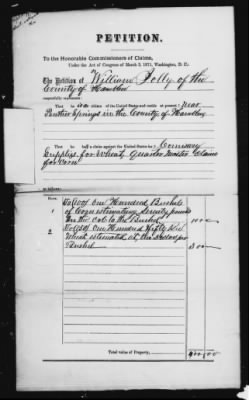 PETITION.
To the Honorable Commissioners of Claims,
Under the Act of Congress of March 3, 1871, Washington, D. C.:
The Petition of William Jolly of the
County of Hamblen
respectfully represents:
That he is a citizen of the United States and resides at present near
Panther Springs in the County of Hamblen
That he has a claim against the United States for Commissary
Supplies for Wheat, Quarter Master Claims
for Corn
as follows:
Item.
1 To 100 one Hundred Bushels
of Corn estimating Seventy pounds
in the cob to the Bushel 100 00
2 To 150 one Hundred Fifty Bu
Wheat estimated at two Dollars per
Bushel 300 00
Total value of Property, 400.00